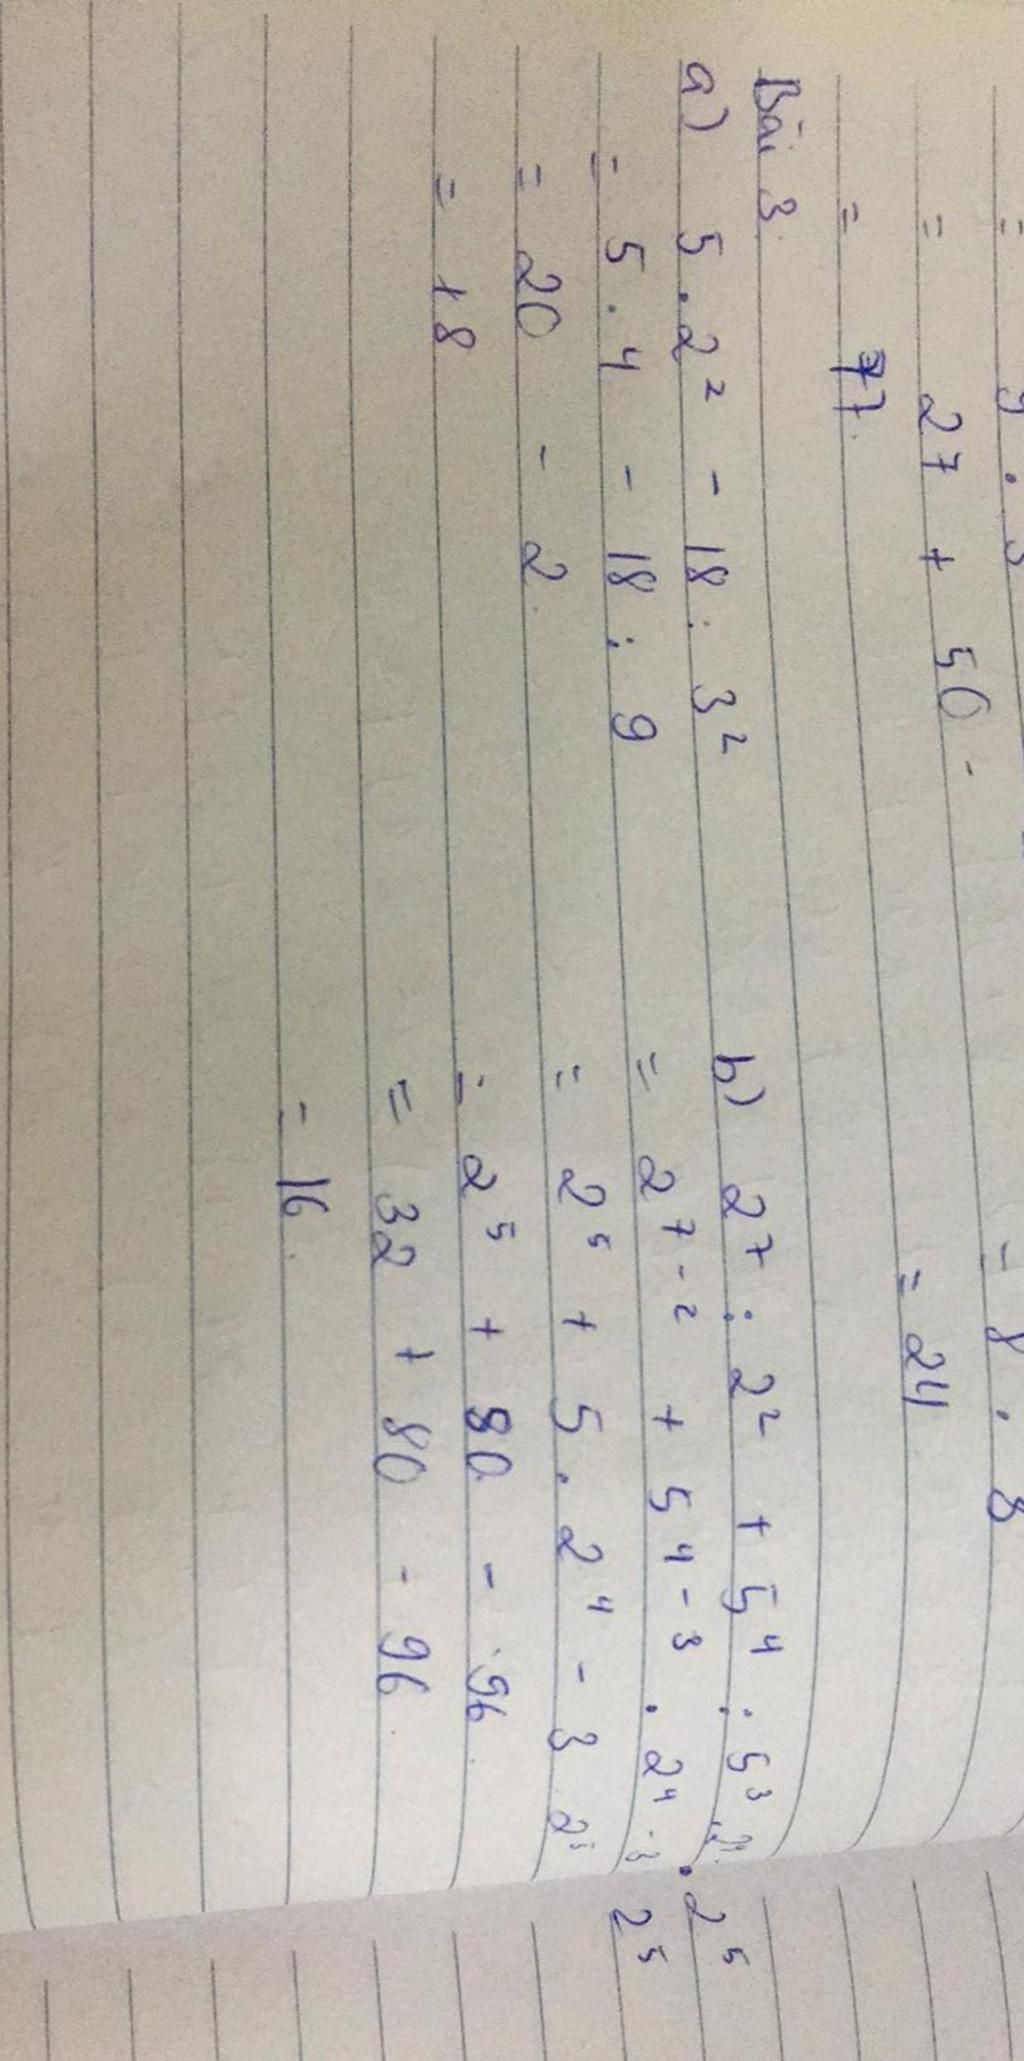 = 9 . 3
= 27 + 50 -
= 77.
- 8 . 3
= 24
Bài 3.
a) 5 . 2² - 18 : 3²
= 5 . 4 - 18 : 9
= 20 - 2
= 18
b) 2⁷ : 2² + 5⁴ : 5³ . 2⁵
= 2⁷⁻² + 5⁴⁻³ . 2⁴ - 3 2⁵
= 2⁵ + 5 . 2⁴ - 3 . 2⁵
= 2⁵ + 80 - 96
= 32 + 80 - 96
= 16.